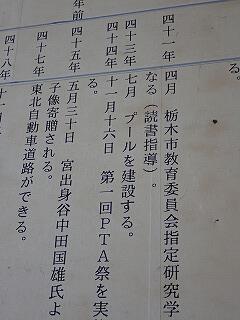 る。
四十一年 四月 栃木市教育委員会指定研究学
なる(読書指導)。
四十三年 七月 プールを建設する。
十一月十六日 第一回PTA祭を実
る。
年前
四十五年 五月三十日 宮出身谷中田国雄氏よ
子像寄贈される。
四十七年 東北自動車道路ができる。
四十八年 十一月